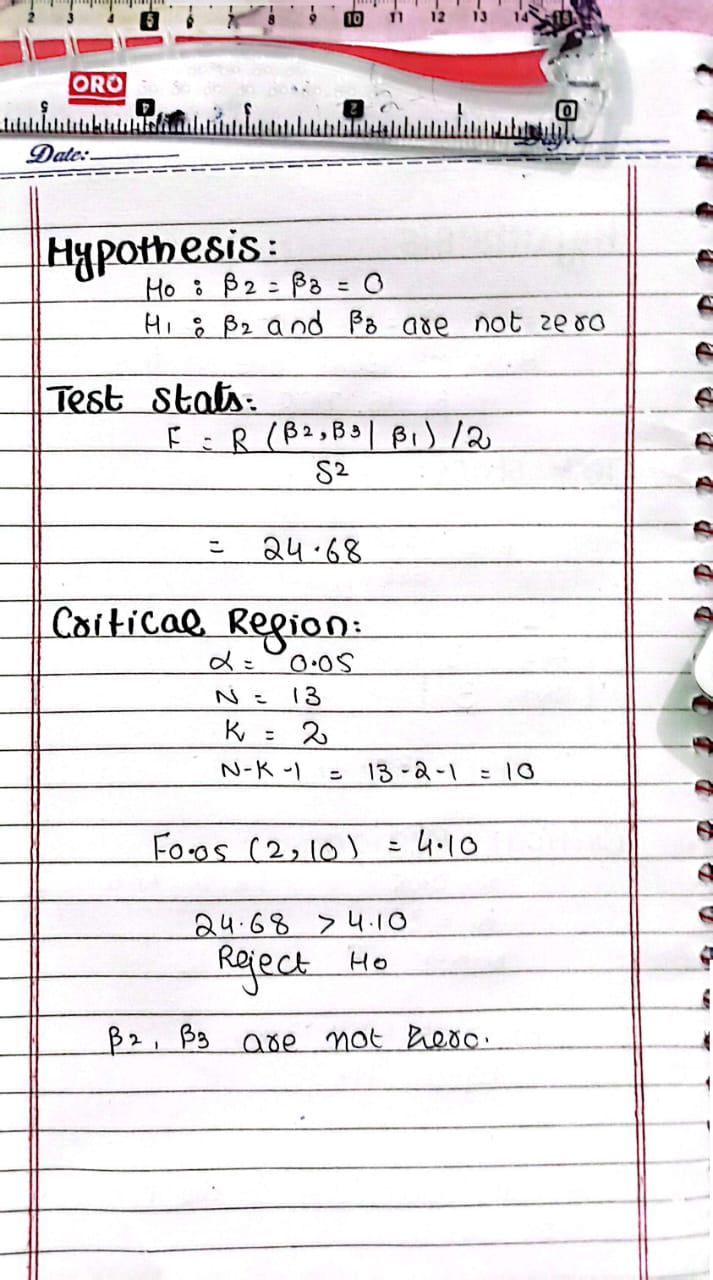 2 3 4 5 6 7 8 9 10 11 12 13 14 15
ORO
5 4 3 2 1 0
Date:
Hypothesis:
H0 : β2 = β3 = 0
H1 : β2 and β3 are not zero
Test stats:
F = R (β2, β3 | β1) / 2
S2
= 24.68
Critical Region:
α = 0.05
N = 13
K = 2
N-K-1 = 13-2-1 = 10
F0.05 (2, 10) = 4.10
24.68 > 4.10
Reject H0
β2, β3 are not zero.